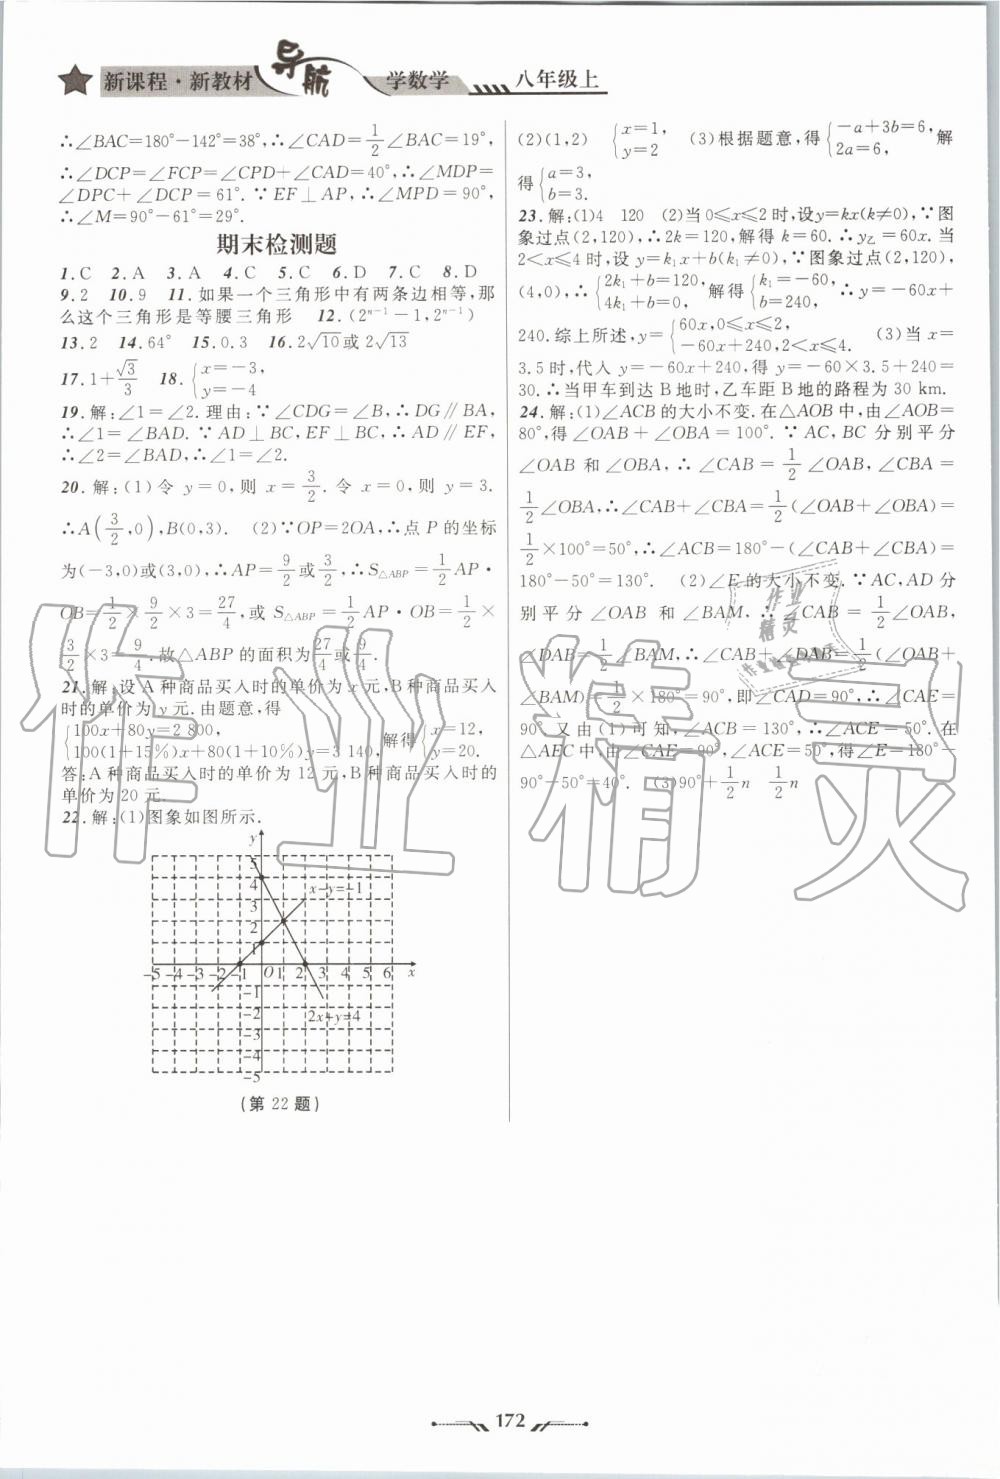 新课程·新教材 导航 学数学 八年级上
∴∠BAC=180°-142°=38°,∴∠CAD=1/2∠BAC=19°,
∴∠DCP=∠FCP=∠CPD+∠CAD=40°,∴∠MDP=
∠DPC+∠DCP=61°.∵EF⊥AP,∴∠MPD=90°,
∴∠M=90°-61°=29°.
期末检测题
1.C 2.A 3.A 4.C 5.C 6.D 7.C 8.D
9.2 10.9 11.如果一个三角形中有两条边相等,那
么这个三角形是等腰三角形 12.(2ⁿ⁻¹-1,2ⁿ⁻¹)
13.2 14.64° 15.0.3 16.2√10或2√13
17.1+√3/3 18.{x=-3, y=-4
19.解:∠1=∠2.理由:∵∠CDG=∠B,∴DG∥BA,
∴∠1=∠BAD.∵AD⊥BC,EF⊥BC,∴AD∥EF,
∴∠2=∠BAD,∴∠1=∠2.
20.解:(1)令 y=0,则 x=3/2.令 x=0,则 y=3.
∴A(3/2,0),B(0,3). (2)∵OP=2OA,∴点 P 的坐标
为(-3,0)或(3,0),∴AP=9/2或3/2,∴S△ABP=1/2AP·
OB=1/2×9/2×3=27/4,或 S△ABP=1/2AP·OB=1/2×
3/2×3=9/4.故△ABP 的面积为27/4或9/4.
21.解:设 A 种商品买入时的单价为 x 元,B 种商品买入
时的单价为 y 元.由题意,得
{100x+80y=2 800, 100(1+15%)x+80(1+10%)y=3 140, 解得{x=12, y=20.
答:A 种商品买入时的单价为 12 元,B 种商品买入时的
单价为 20 元.
22.解:(1)图象如图所示.
y
5
4
3
2
1
x-y=-1
-5 -4 -3 -2 -1 O 1 2 3 4 5 6 x
-1
-2
2x+y=4
-3
-4
-5
(第 22 题)
(2)(1,2) {x=1, y=2 (3)根据题意,得{-a+3b=6, 2a=6, 解
得{a=3, b=3.
23.解:(1)4 120 (2)当 0≤x≤2 时,设 y=kx(k≠0),∵图
象过点(2,120),∴2k=120,解得 k=60.∴y乙=60x.当
2<x≤4 时,设 y=k₁x+b(k₁≠0),∵图象过点(2,120),
(4,0),∴{2k₁+b=120, 4k₁+b=0, 解得{k₁=-60, b=240, ∴y=-60x+
240.综上所述,y={60x,0≤x≤2, -60x+240,2<x≤4. (3)当 x=
3.5 时,代入 y=-60x+240,得 y=-60×3.5+240=
30.∴当甲车到达 B 地时,乙车距 B 地的路程为 30 km.
24.解:(1)∠ACB 的大小不变.在△AOB 中,由∠AOB=
80°,得∠OAB+∠OBA=100°.∵AC,BC 分别平分
∠OAB 和∠OBA,∴∠CAB=1/2∠OAB,∠CBA=
1/2∠OBA,∴∠CAB+∠CBA=1/2(∠OAB+∠OBA)=
1/2×100°=50°,∴∠ACB=180°-(∠CAB+∠CBA)=
180°-50°=130°. (2)∠E 的大小不变.∵AC,AD 分
别平分∠OAB 和∠BAM,∴∠CAB=1/2∠OAB,
∠DAB=1/2∠BAM,∴∠CAB+∠DAB=1/2(∠OAB+
∠BAM)=1/2×180°=90°,即∠CAD=90°,∴∠CAE=
90°.又由(1)可知,∠ACB=130°,∴∠ACE=50°.在
△AEC 中,由∠CAE=90°,∠ACE=50°,得∠E=180°-
90°-50°=40°. (3)90°+1/2n 1/2n
作业精灵
作业
精灵
172